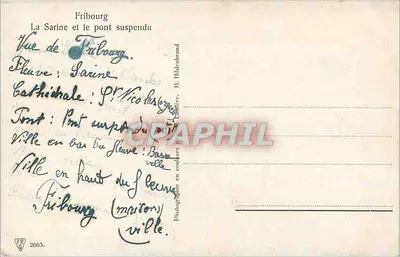 Fribourg
La Sarine et le pont suspendu
Vue de Fribourg.
Fleuve : Sarine
Cathédrale : St Nicolas
Pont : Pont suspendu
Ville en bas du fleuve : Basse
ville
Ville en haut du fleuve
Fribourg (maisons)
(ville.
2663.
Photographie en couleurs
H. Hildenbrand
CPAPHIL